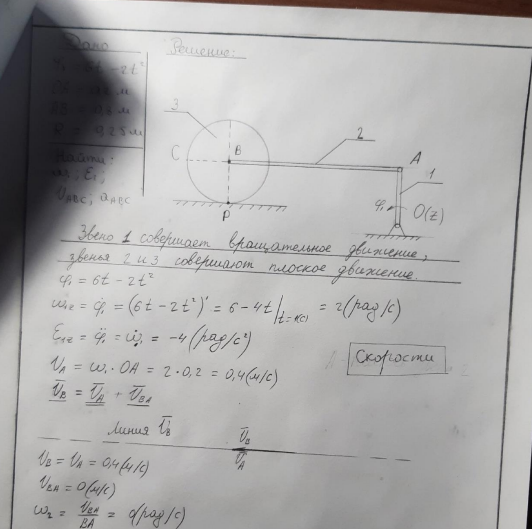 Дано
Решение:
φ₁ = 6t - 2t²
R = 0,25 м
Найти:
3
2
C
B
A
1
φ₁
O(z)
P
Звено 1 совершает вращательное движение,
звенья 2 и 3 совершают плоское движение.
φ₁ = 6t - 2t²
ω₁z = φ̇₁ = (6t - 2t²)' = 6 - 4t |t=1(c) = 2(рад/с)
ε₁z = φ̈₁ = ω̇₁ = -4(рад/с²)
Скорости
V_A = ω₁ · OA = 2 · 0,2 = 0,4(м/с)
V̄_B = V̄_A + V̄_BA
Линия V̄_B
V̄_B
V̄_A
V_B = V_A = 0,4(м/с)
V_BA = 0(м/с)
ω₂ = V_BA/BA = 0(рад/с)